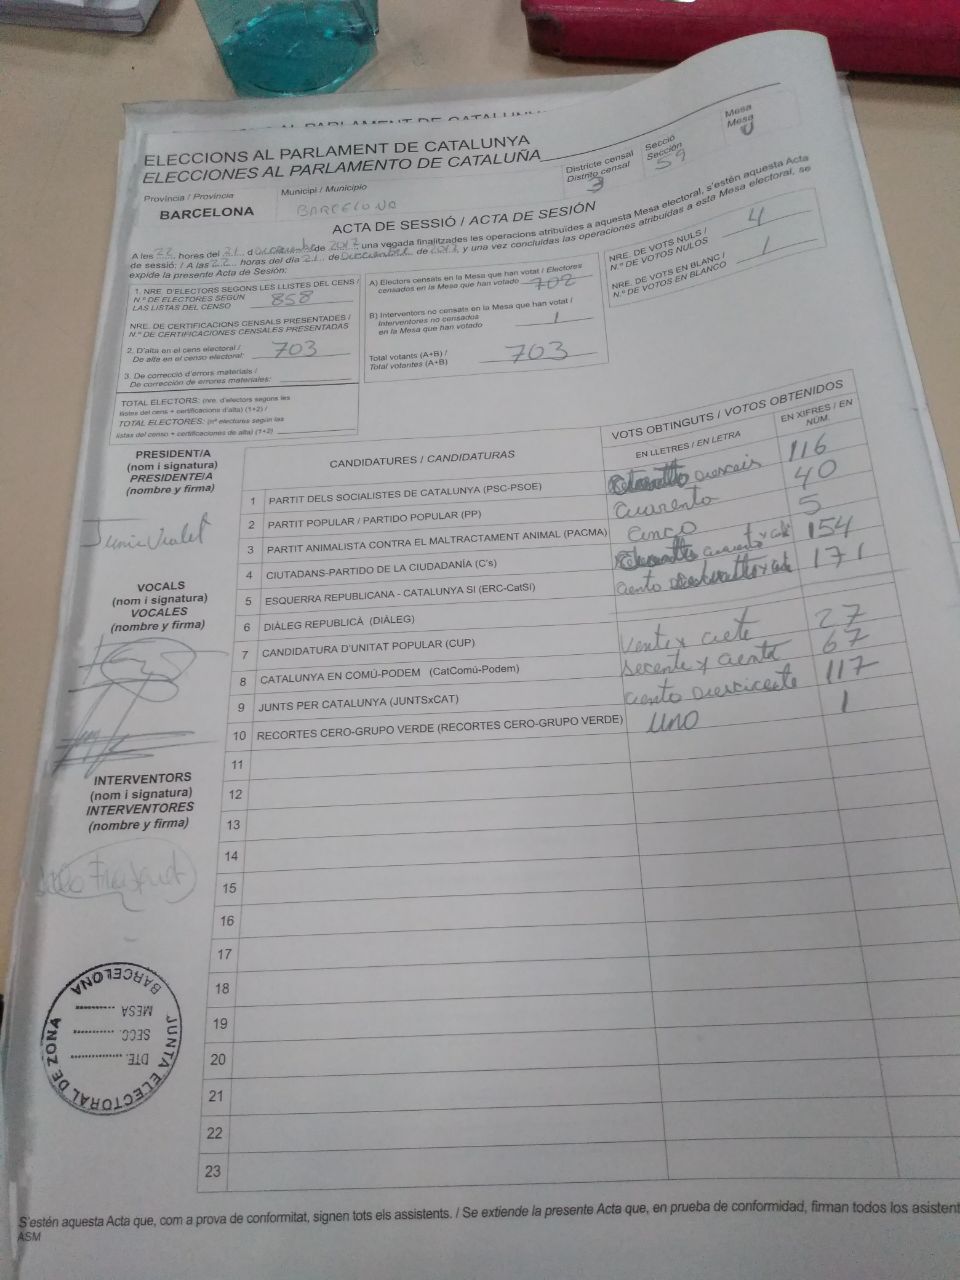 ELECCIONS AL PARLAMENT DE CATALUNYA
ELECCIONES AL PARLAMENTO DE CATALUÑA
Districte censal
Distrito censal
3
Secció
Sección
59
Mesa
Mesa
U
Província / Provincia
BARCELONA
Municipi / Municipio
BARCELONA
ACTA DE SESSIÓ / ACTA DE SESIÓN
A les 22 hores del 21 d de 2017, una vegada finalitzades les operacions atribuïdes a aquesta Mesa electoral, s'estén aquesta Acta
de sessió: / A las 22 horas del día 21, de Diciembre de 2017, y una vez concluidas las operaciones atribuidas a esta Mesa electoral, se
expide la presente Acta de Sesión:
1. NRE. D'ELECTORS SEGONS LES LLISTES DEL CENS /
N.º DE ELECTORES SEGÚN
LAS LISTAS DEL CENSO 858
NRE. DE CERTIFICACIONS CENSALS PRESENTADES /
N.º DE CERTIFICACIONES CENSALES PRESENTADAS
2. D'alta en el cens electoral /
De alta en el censo electoral: 703
3. De correcció d'errors materials /
De corrección de errores materiales:
TOTAL ELECTORS: (nre. d'electors segons les
llistes del cens + certificacions d'alta) (1+2) /
TOTAL ELECTORES: (nº electores según las
listas del censo + certificaciones de alta) (1+2)
A) Electors censats en la Mesa que han votat / Electores
censados en la Mesa que han votado 702
B) Interventors no censats en la Mesa que han votat /
Interventores no censados
en la Mesa que han votado 1
Total votants (A+B) /
Total votantes (A+B) 703
NRE. DE VOTS NULS /
N.º DE VOTOS NULOS 4
NRE. DE VOTS EN BLANC /
N.º DE VOTOS EN BLANCO 1
PRESIDENT/A
(nom i signatura)
PRESIDENTE/A
(nombre y firma)
VOCALS
(nom i signatura)
VOCALES
(nombre y firma)
INTERVENTORS
(nom i signatura)
INTERVENTORES
(nombre y firma)
CANDIDATURES / CANDIDATURAS
VOTS OBTINGUTS / VOTOS OBTENIDOS
EN LLETRES / EN LETRA
EN XIFRES / EN NÚM.
1 PARTIT DELS SOCIALISTES DE CATALUNYA (PSC-PSOE) 116
2 PARTIT POPULAR / PARTIDO POPULAR (PP) Cuarenta 40
3 PARTIT ANIMALISTA CONTRA EL MALTRACTAMENT ANIMAL (PACMA) Cinco 5
4 CIUTADANS-PARTIDO DE LA CIUDADANÍA (C's) 154
5 ESQUERRA REPUBLICANA - CATALUNYA SÍ (ERC-CatSí) ciento 171
6 DIÀLEG REPUBLICÀ (DIÀLEG)
7 CANDIDATURA D'UNITAT POPULAR (CUP) 27
8 CATALUNYA EN COMÚ-PODEM (CatComú-Podem) 67
9 JUNTS PER CATALUNYA (JUNTSxCAT) ciento 117
10 RECORTES CERO-GRUPO VERDE (RECORTES CERO-GRUPO VERDE) uno 1
11
12
13
14
15
16
17
18
19
20
21
22
23
JUNTA ELECTORAL DE ZONA
BARCELONA
DTE.
SECC.
MESA
S'estén aquesta Acta que, com a prova de conformitat, signen tots els assistents. / Se extiende la presente Acta que, en prueba de conformidad, firman todos los asistent
ASM